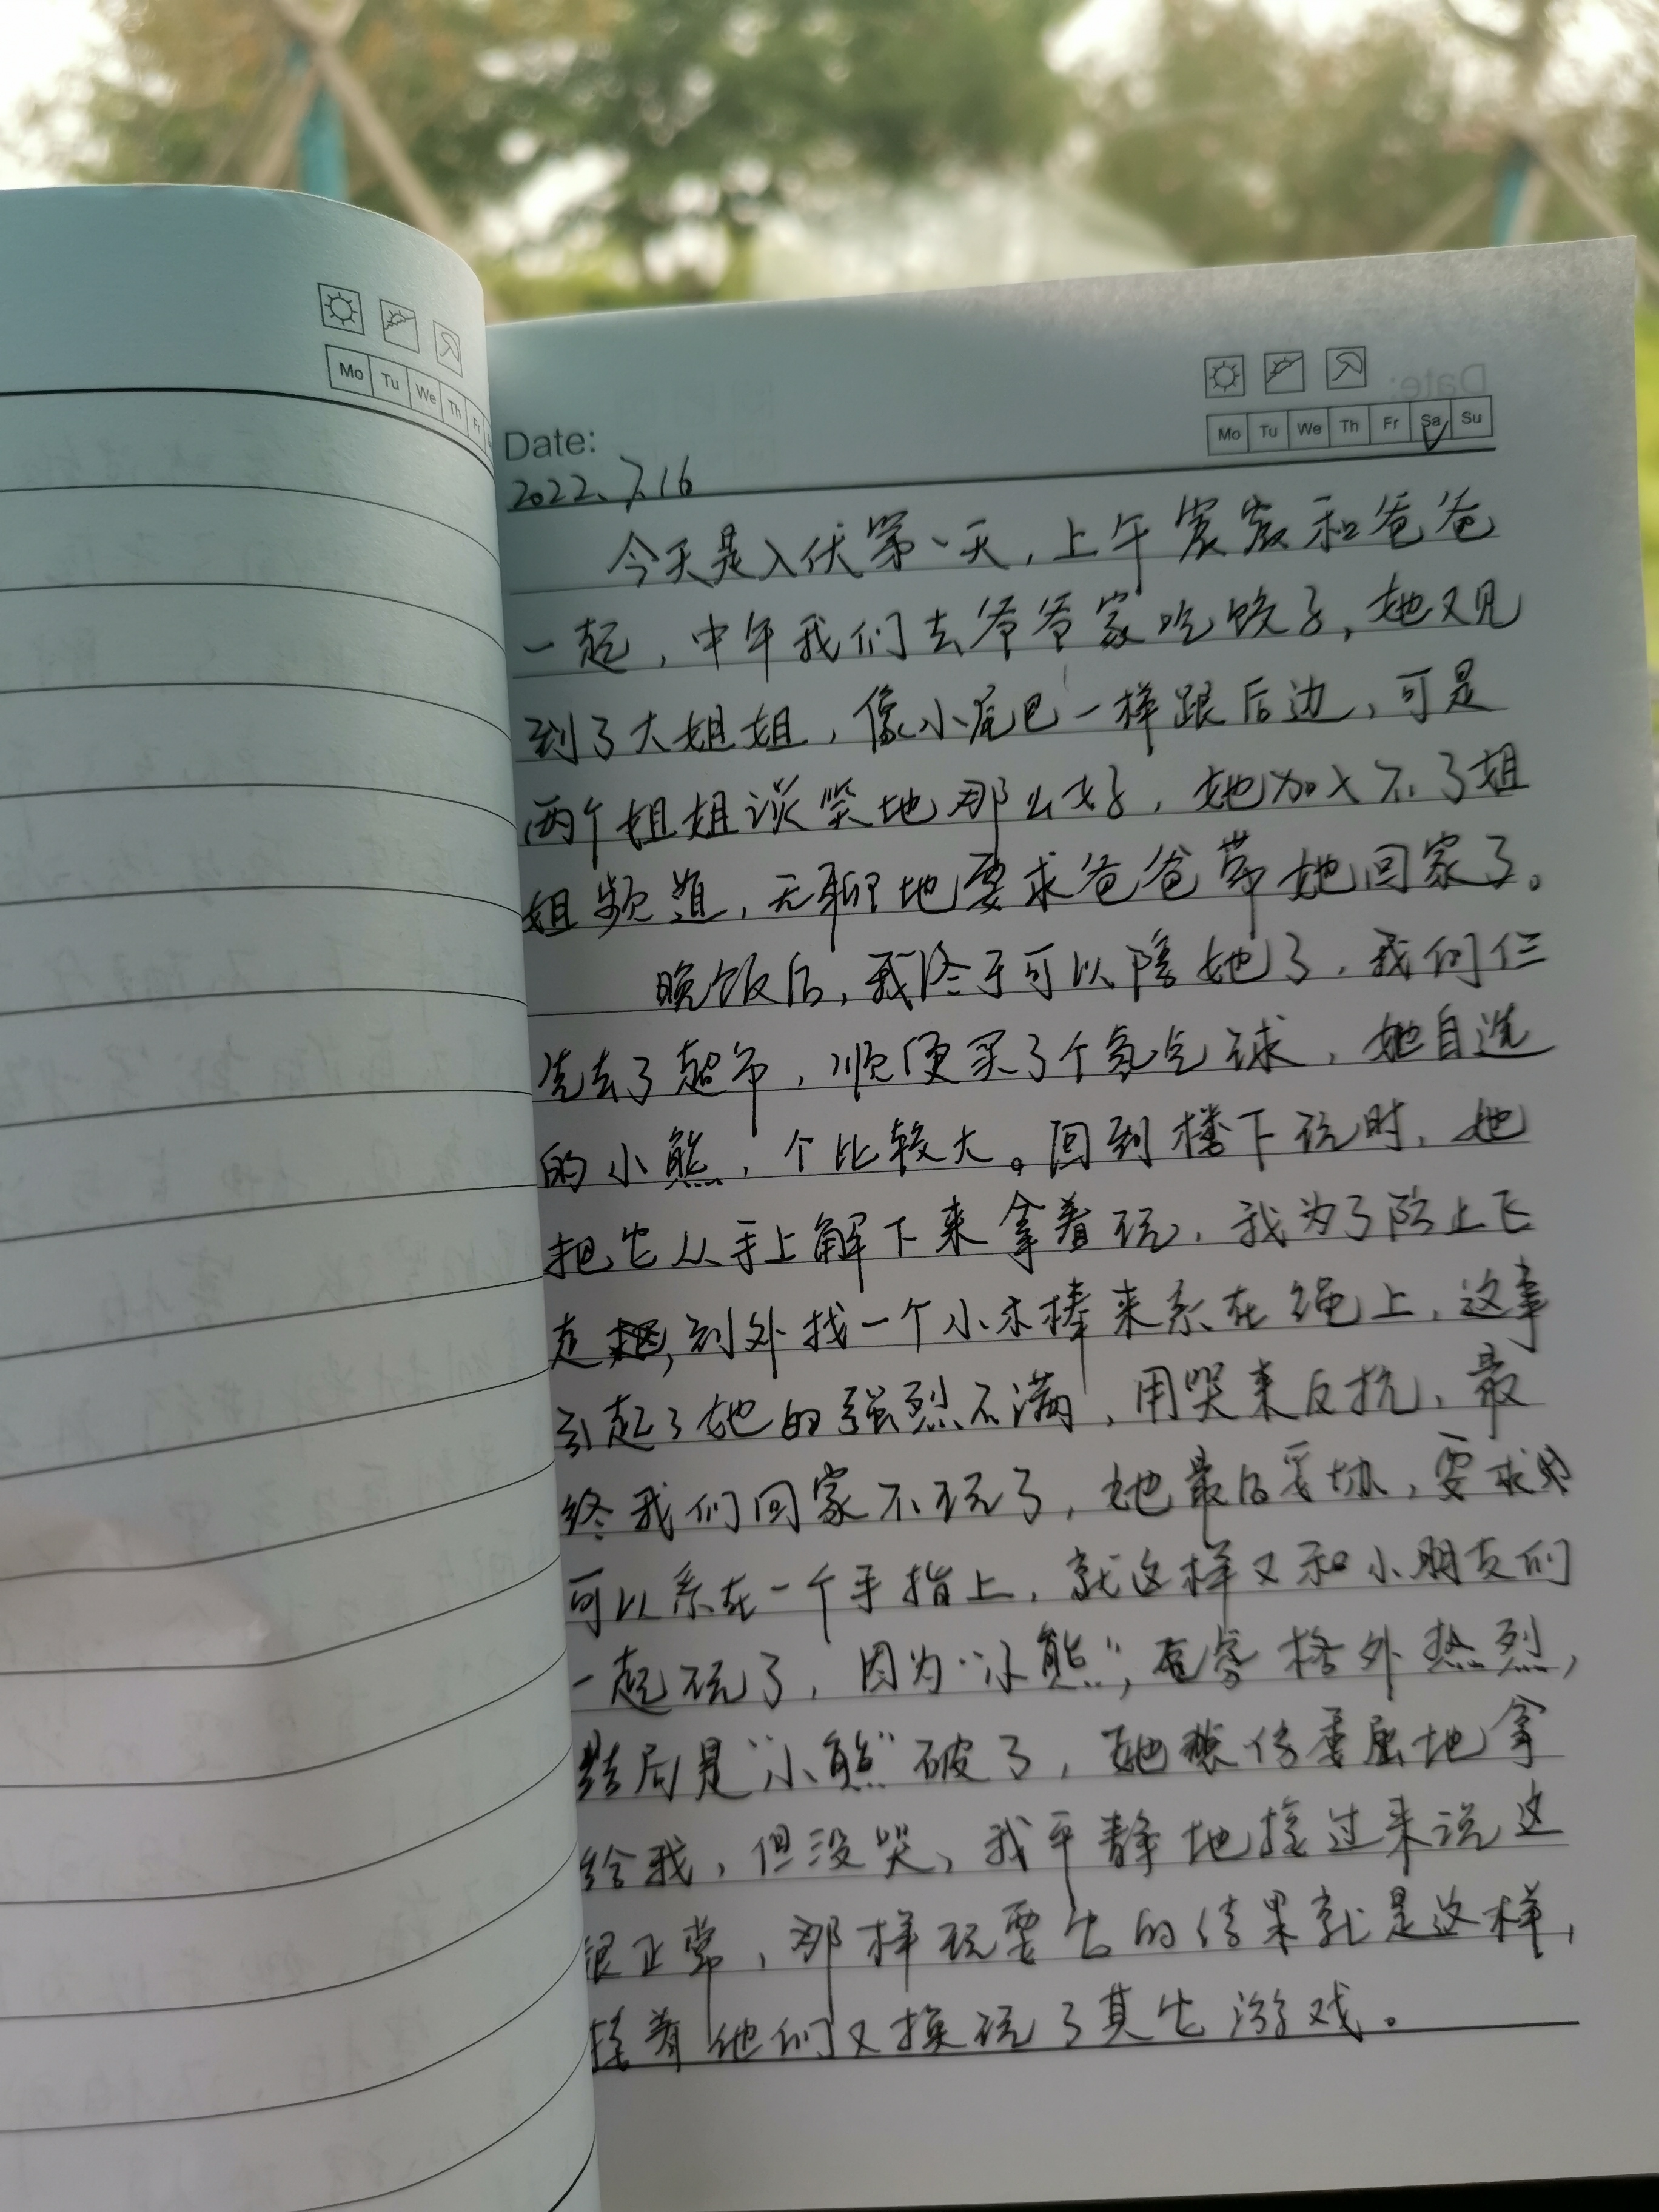 Mo Tu We Th Fr
Date:
Mo Tu We Th Fr Sa Su
2022.7.16
今天是入伏第一天，上午宸宸和爸爸
一起，中午我们去爷爷家吃饺子，她又见
到了大姐姐，像小尾巴一样跟后边，可是
两个姐姐谈笑地那么好，她加入不了姐
姐频道，无聊地要求爸爸带她回家了。
晚饭后，我终于可以陪她了，我们仨
先去了超市，顺便买了个氢气球，她自选
的小熊，个比较大。回到楼下玩时，她
把它从手上解下来拿着玩，我为了防止飞
走，到外找一个小木棒来系在绳上，这事
引起了她的强烈不满，用哭来反抗，最
终我们回家不玩了，她最后妥协，要求
可以系在一个手指上，就这样又和小朋友们
一起玩了，因为“小熊”，格外热烈，
结局是“小熊”破了，她很伤委屈地拿
给我，但没哭，我平静地接过来说这
很正常，那样玩耍它的结果就是这样，
接着他们又换玩了其它游戏。